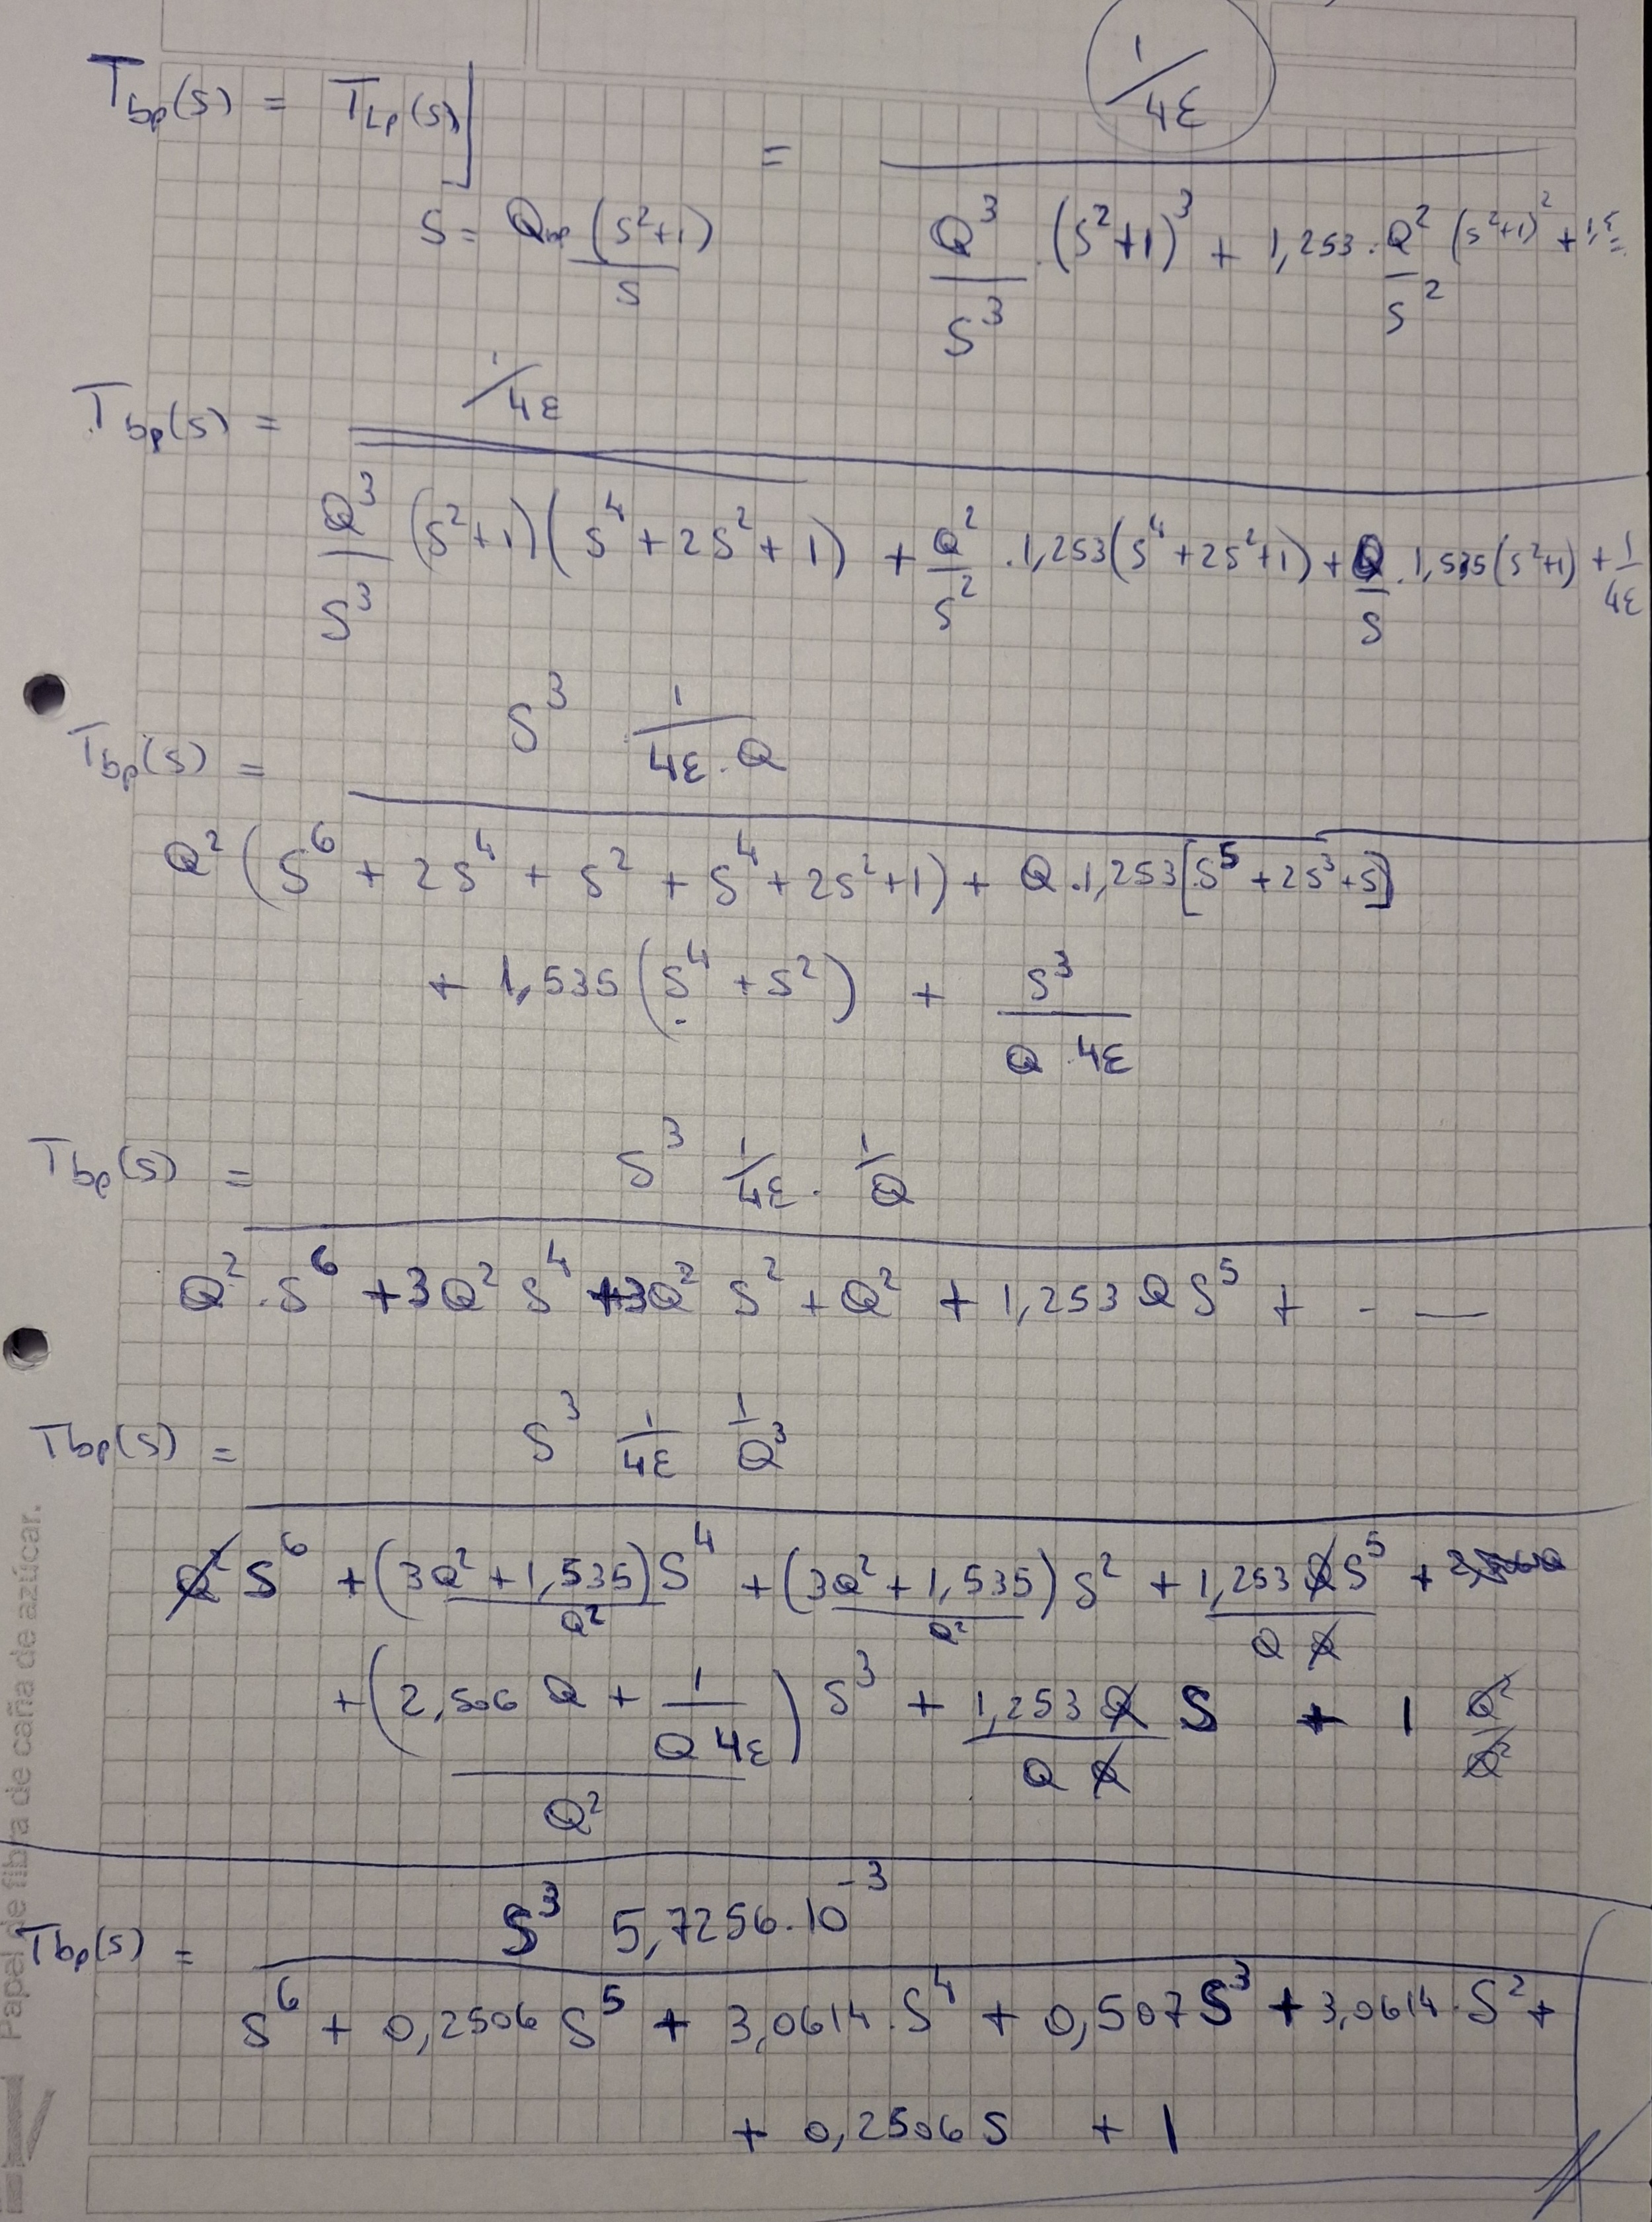 T_bp(s) = T_Lp(s)] = 1/4ε
S = Q_bp (s²+1)/s
Q³/S³ · (s²+1)³ + 1,253 · Q²/s² (s²+1)² +
T_bp(s) = 1/4ε
Q³/S³ (s²+1)(s⁴+2s²+1) + Q²/s² · 1,253(s⁴+2s²+1) + Q/s · 1,535(s²+1) + 1/4ε
T_bp(s) = S³ 1/(4ε·Q)
Q² (S⁶ + 2s⁴ + s² + s⁴ + 2s² + 1) + Q · 1,253[s⁵ + 2s³ + s]
+ 1,535 (s⁴ + s²) + s³/(Q 4ε)
T_bp(s) = S³ 1/4ε · 1/Q
Q² · S⁶ + 3Q² S⁴ + 3Q² S² + Q² + 1,253 Q S⁵ + - —
T_bp(s) = S³ 1/4ε 1/Q³
Q² S⁶ + (3Q² + 1,535)/Q² S⁴ + (3Q² + 1,535)/Q² S² + 1,253 Q S⁵/(Q Q) +
+ (2,506 Q + 1/(Q 4ε))/Q² S³ + 1,253 Q/(Q Q) S + 1 Q²/Q²
T_bp(s) = S³ 5,7256·10⁻³
S⁶ + 0,2506 S⁵ + 3,0614·S⁴ + 0,507 S³ + 3,0614·S² +
+ 0,2506 S + 1
Papel de fibra de caña de azúcar.